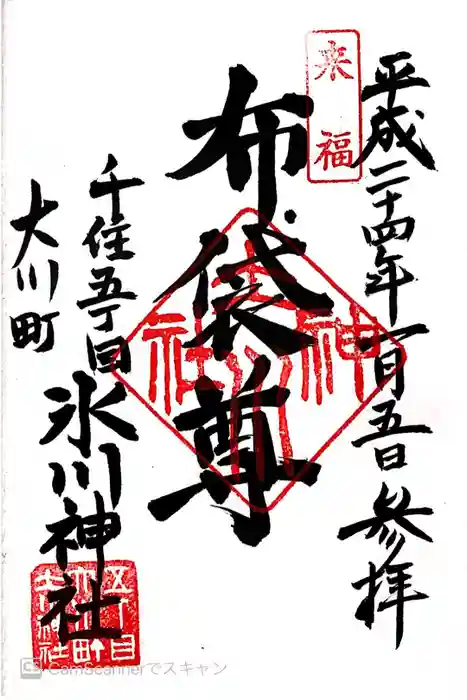 平成二十四年一月五日参拝
来福
布袋尊
千住五丁目氷川神社
大川町
CS CamScannerでスキャン